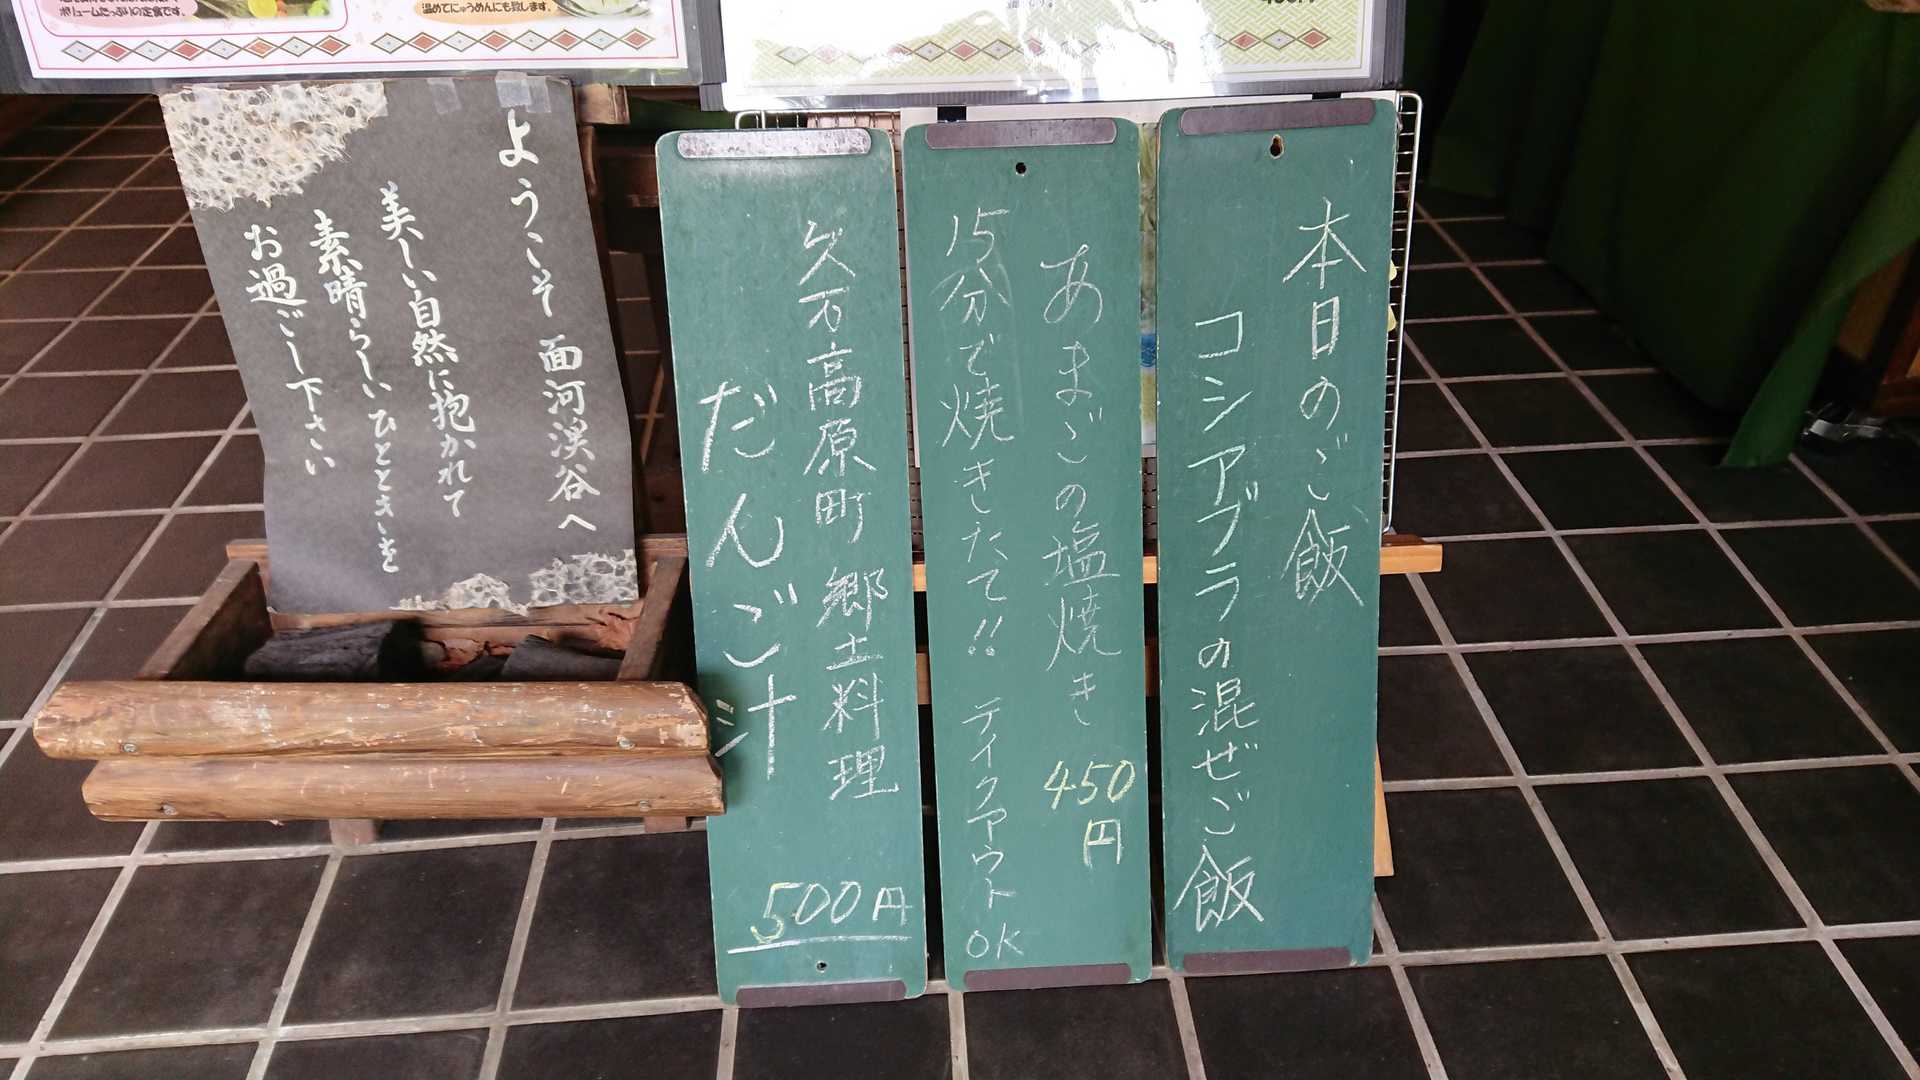 ボリュームたっぷりの定食です。
温めてにゅうめんにも致します。
ようこそ 面河渓谷へ
美しい自然に抱かれて
素晴らしいひとときを
お過ごし下さい
久万高原町 郷土料理
だんご汁
500円
あまごの塩焼き 450円
15分で焼きたて!! テイクアウトOK
本日のご飯
コシアブラの混ぜご飯